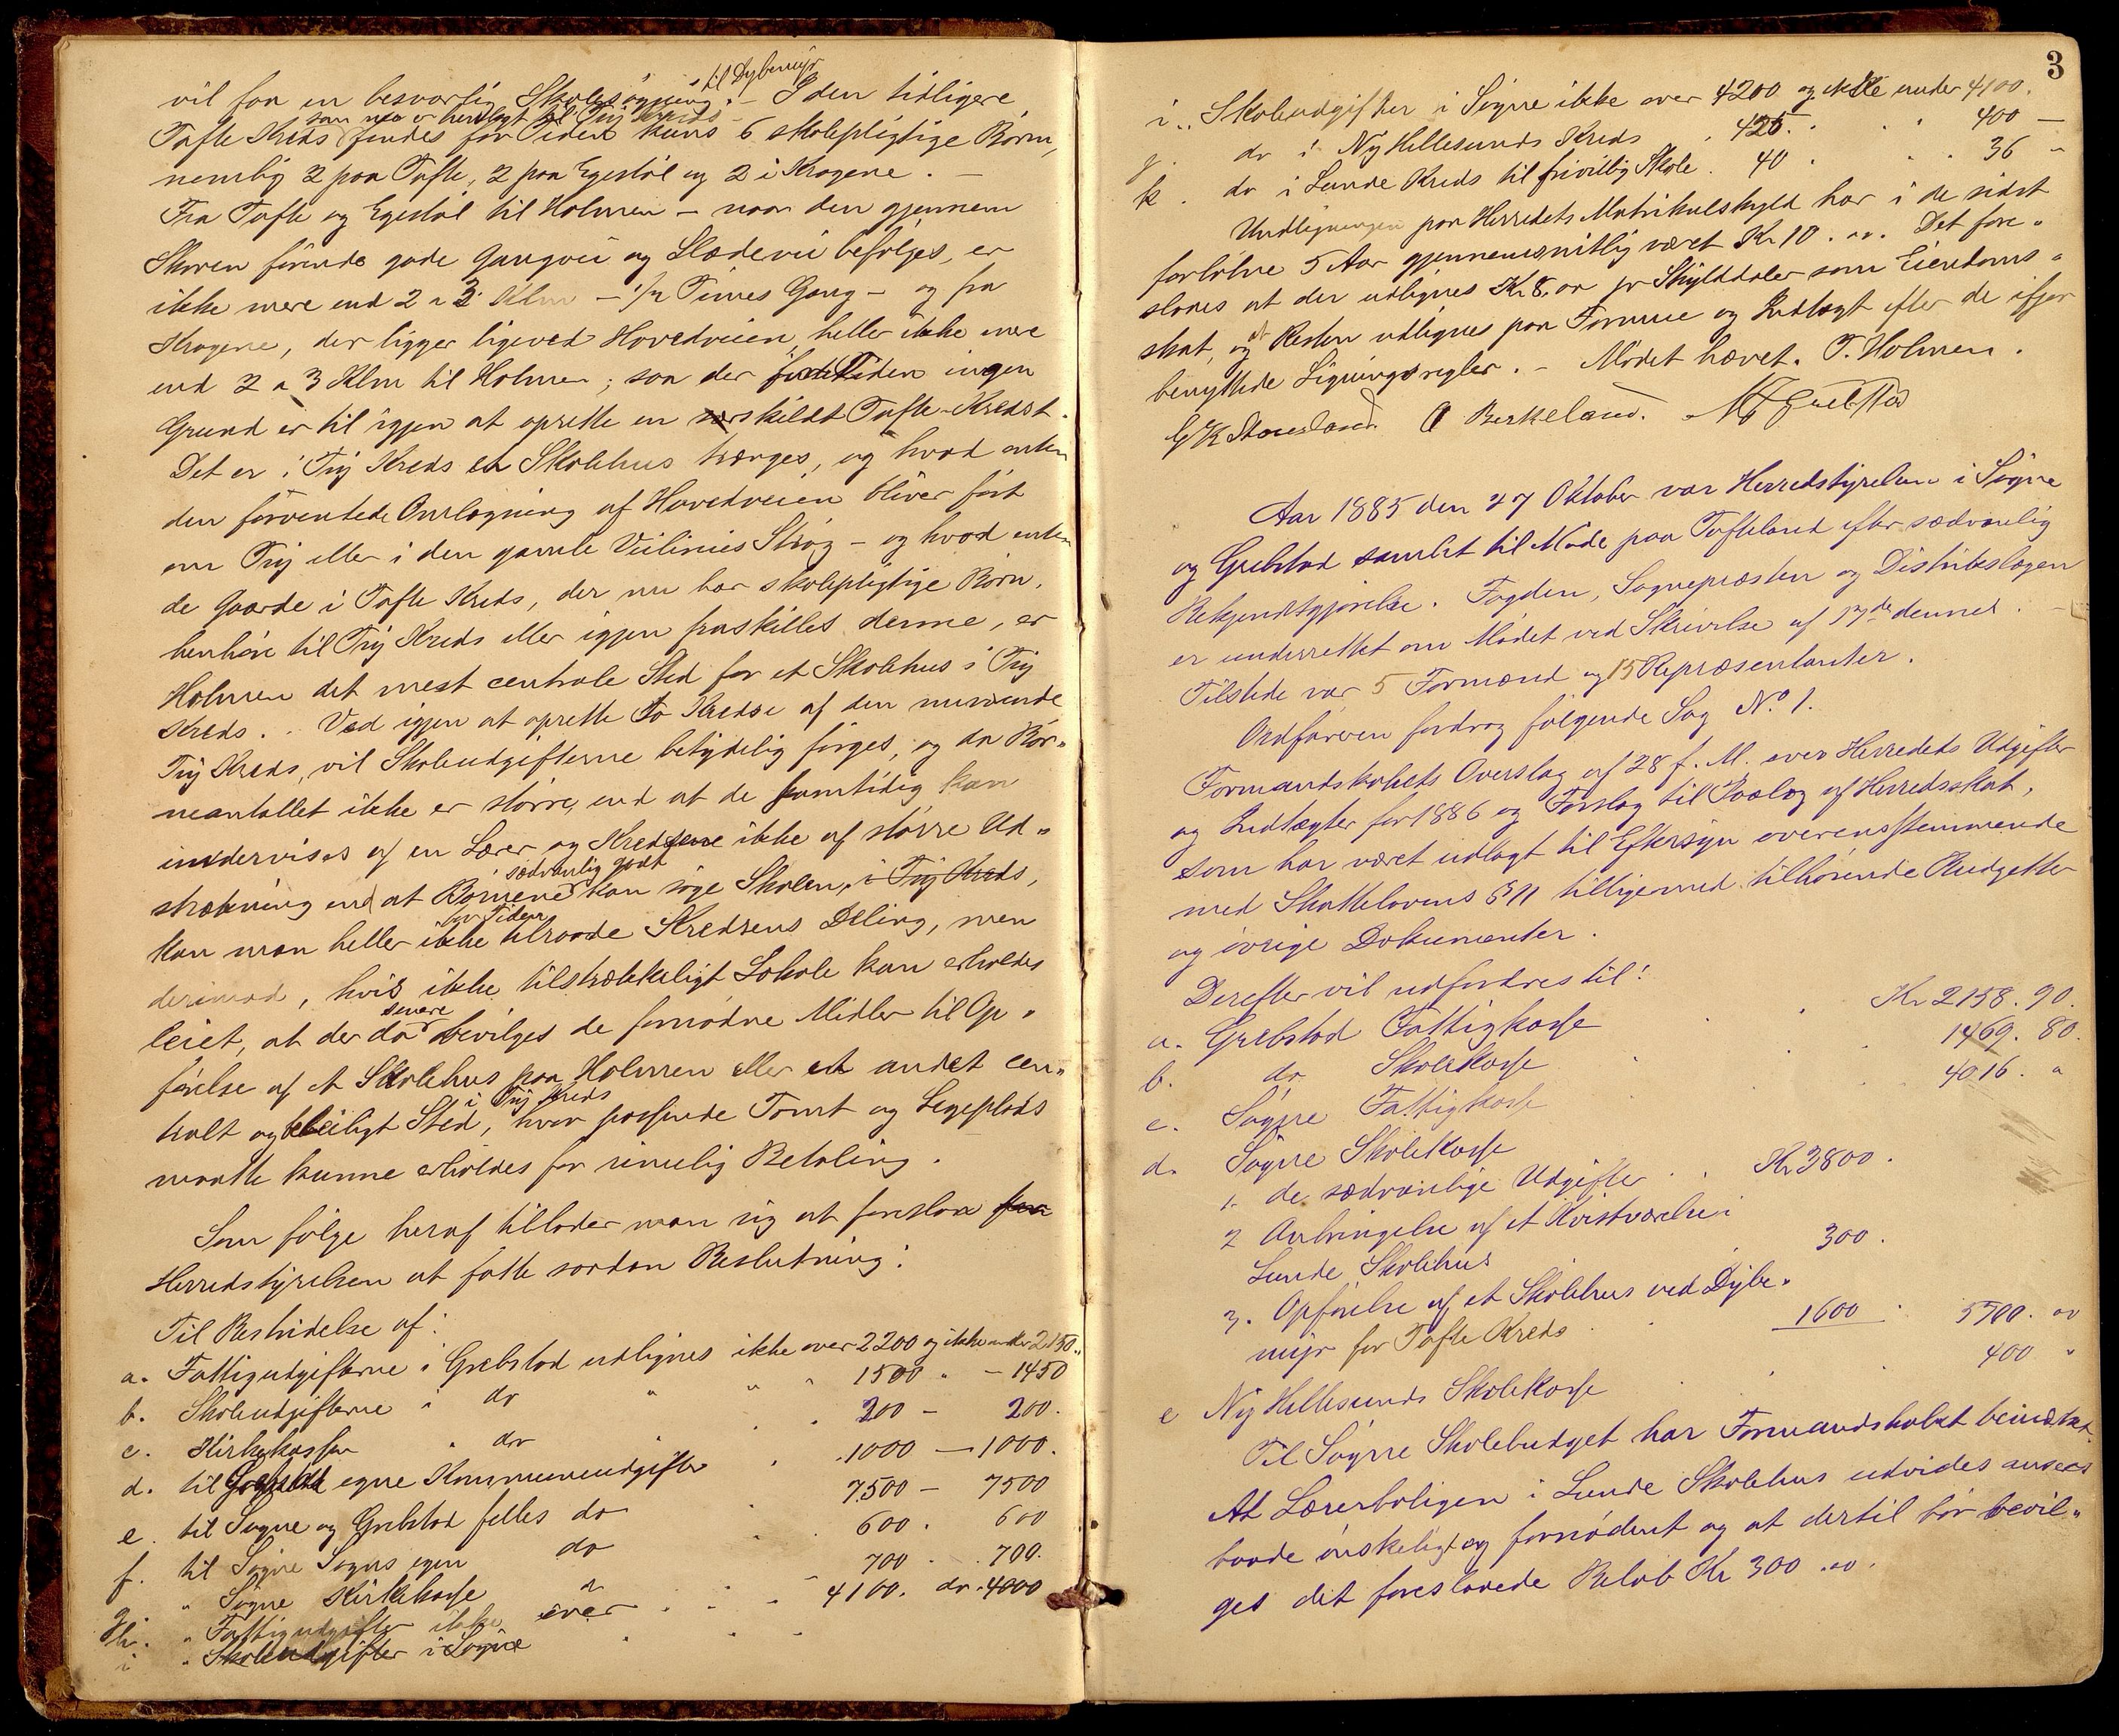 vil faa en besværlig Skolesøgning til Dybemyr. – I den tidligere
Tofte Kreds som nu er henlagt til Trij Kreds findes for Tiden kuns 6 skolepligtige Børn,
nemlig 2 paa Tofte, 2 paa Egestøl og 2 i Kragene. –
Fra Tofte og Egestøl til Holmen – naar den gjennem
Skoven førende gode Gangvei og Slædevei befølges, er
ikke mere end 2 a 3 Klm – ½ Times Gang – og fra
Kragene, der ligger ligeved Hovedveien, heller ikke mere
end 2 a 3 Klm til Holmen; saa der for Tiden ingen
Grund er til igjen at oprette en særskildt Tofte-Kreds.
Det er i Trij Kreds et Skolehus trænges, og hvad enten
den forventede Omlægning af Hovedveien bliver ført
om Trij eller i den gamle Veilinies Strøg – og hvad enten
de Gaarde i Tofte Kreds, der nu har skolepligtige Børn,
henhøre til Trij Kreds eller igjen fraskilles denne, er
Holmen det mest centrale Sted for et Skolehus i Trij
Kreds. . Ved igjen at oprette to Kredse af den nuværende
Trij Kreds, vil Skoleudgifterne betydelig forøges, og da Bør„
neantallet ikke er større, end at de samtidig kan
undervises af en Lærer og Kredsene ikke af større Ud„
strækning end at Børnene sædvanlig godt kan søge Skolen, i Trij Kreds,
kan man heller ikke for Tiden tilraade Kredsens Deling, men
derimod, hvis ikke tilstrækkeligt Lokale kan erholdes
leiet, at der da senere bevilges de fornødne Midler til Op„
førelse af et Skolehus paa Holmen eller et andet cen„
tralt og beleiligt Sted i Trij Kreds, hvor passende Tomt og Legeplads
maatte kunne erholdes for rimelig Betaling.
Som følge heraf tillader man sig at foreslaa for
Herredstyrelsen at fatte saadan Beslutning:
Til Bestridelse af:
a. Fattigudgifterne i Grebstad udlignes ikke over 2200 og ikke under 2150„
b. Skoleudgifterne i do „ „ „ 1500 „ – 1450
c. Kirkekassen „ do „ . . 200 – 200.
d. til Grebstad egne Kommuneudgifter . 1000 – 1000.
e. til Søgne og Grebstad felles do 7500 – 7500
f. til Søgne Sogns egen do 600 . 600
g. „ Søgne Kirkekasse 700 . . 700.
h. „ Fattigudgifter ikke over . . . 4100. do. 4000
i „ Skoleudgifter i Søgne
3
i.. Skoleudgifter i Søgne ikke over 4200 og ikke under 4100.
j. do i Ny Hellesunds Kreds . 425. . . . 400 –
k. do i Lunde Kreds til frivillig Skole. 40 . . . 36 –
Udligningen paa Herredets Matrikulskyld har i de sidst
forløbne 5 Aar gjennemsnitlig været Kr 10. „. Det fore„
slaaes at der udlignes Kr 8,oo pr Skylddaler som Eiendoms„
skat, og at Resten udlignes paa Formue og Indtægt efter de ifjor
benyttede Ligningsregler. – Mødet hævet. T. Holmen.
O Berkeland.
Aar 1885 den 27 Oktober var Herredstyrelsen i Søgne
og Grebstad samlet til Møde paa Tofteland efter sædvanlig
Bekjendtgjørelse. Fogden, Sognepræsten og Distriktslægen
er underrettet om Mødet ved Skrivelse af 17de dennes. –
Tilstede var 5 Formænd og 15 Repræsentanter.
Ordføreren fordrog følgende Sag No. 1.
Formandskabets Overslag af 28 f. M. over Herredets Udgifter
og Indtægter for 1886 og Forslag til Paalæg af Herredsskat,
som har været udlagt til Eftersyn overensstemmende
med Skattelovens § 11 tilligemed tilhørende Budgetter
og øvrige Dokumenter.
Derefter vil udfordres til:
a. Grebstad Fattigkasse . . Kr 2158. 90.
b. do Skolekasse . . 1469. 80.
c. Søgne Fattigkasse . 4016. „
d. Søgne Skolekasse
1. de sædvanlige Udgifter . . Kr 3800.
2 Anbringelse af et Kvistværelse i
Lunde Skolehus . 300.
3. Opførelse af et Skolehus ved Dybe„
myr for Tofte Kreds . 1600 . 5700. oo
e Ny Hellesunds Skolekasse . . 400 „
Til Søgne Skolebudget har Formandskabet bemærket
At Lærerboligen i Lunde Skolehus udvides ansees
baade ønskeligt og fornødent og at dertil bør bevil„
ges det foreslaaede Beløb Kr 300.oo.